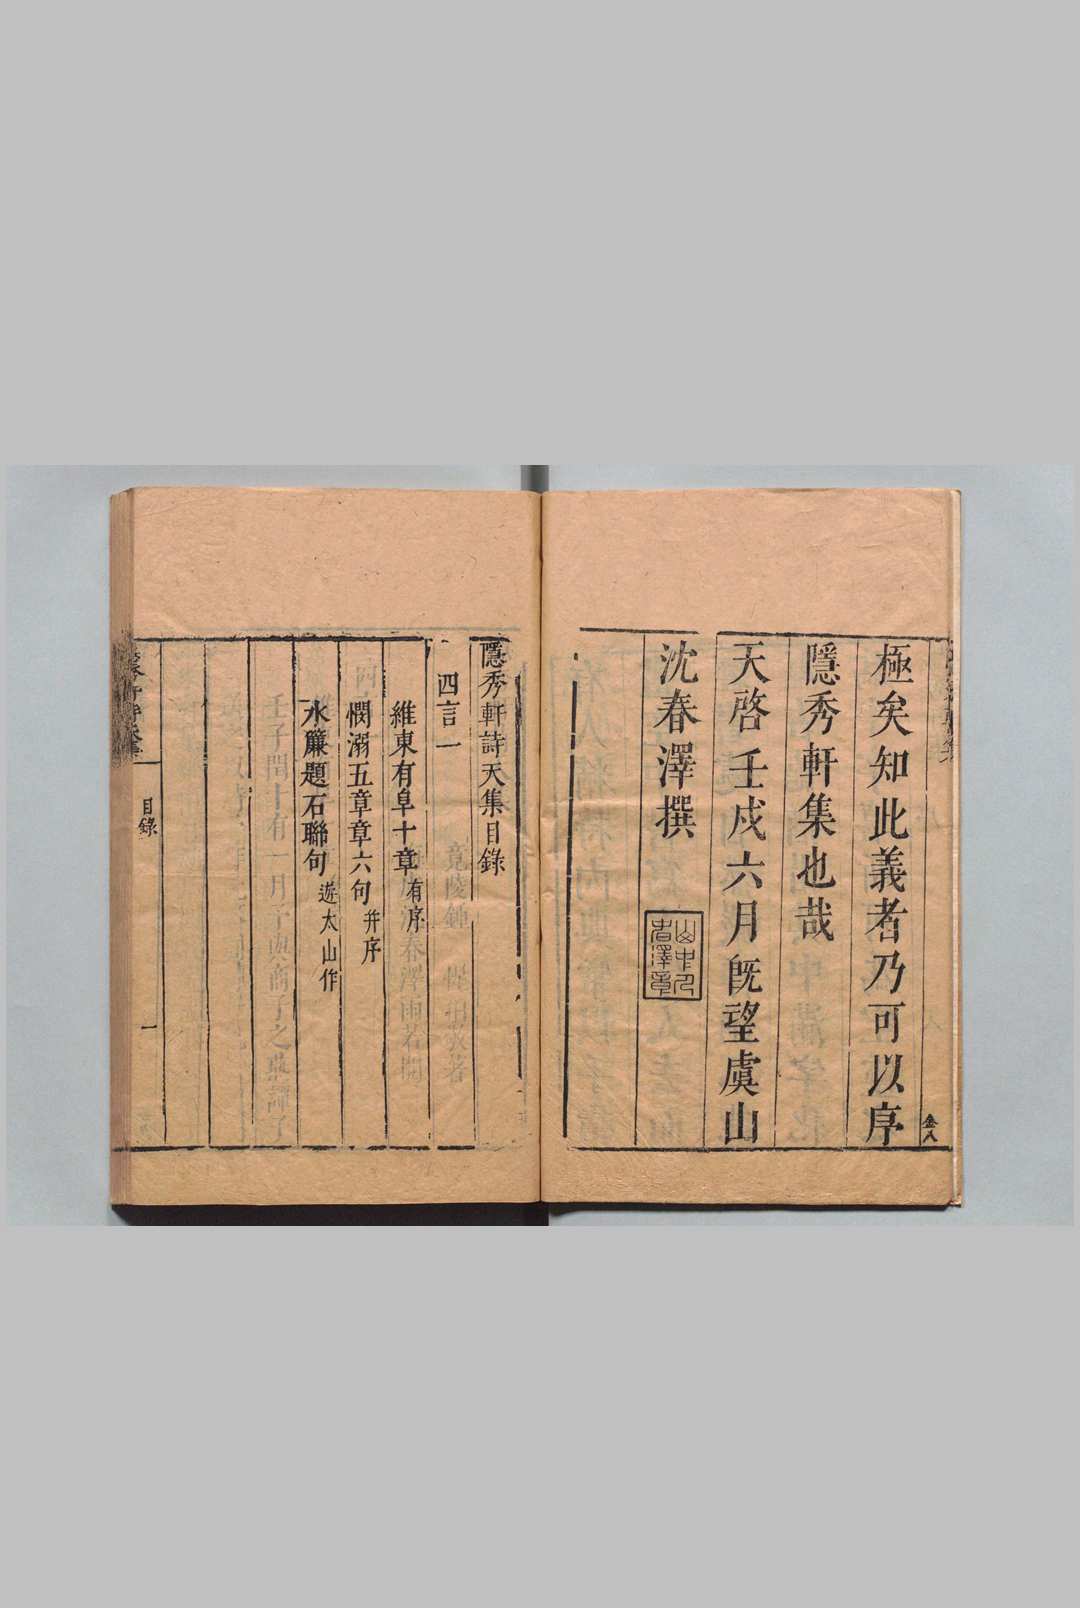 極矣知此義者乃可以序
隱秀軒集也哉
天啓壬戌六月旣望虞山
沈春澤撰
隱秀軒詩天集目錄
四言一
維東有阜十章有序
憫溺五章章六句并序
水簾題石聯句遊太山作
目錄
一